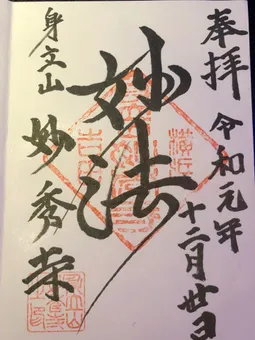 奉拝
令和元年
十二月廿日
妙法
身立山
妙秀寺